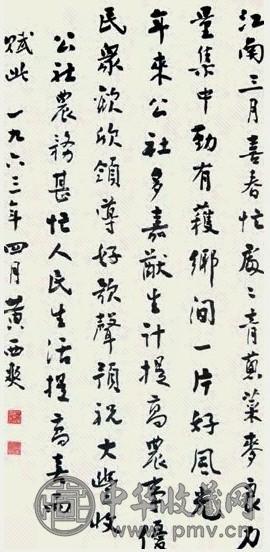 江南三月喜春忙處々青蔥菜麥良力
量集中勁有穫鄉間一片好風光
年來公社多嘉猷生計提高農事優
民衆歡欣領導好歡聲預祝大豐收
公社農務甚忙人民生活提高喜而
賦此 一九六三年四月黃西爽
中华收藏网
www.pmv.cn